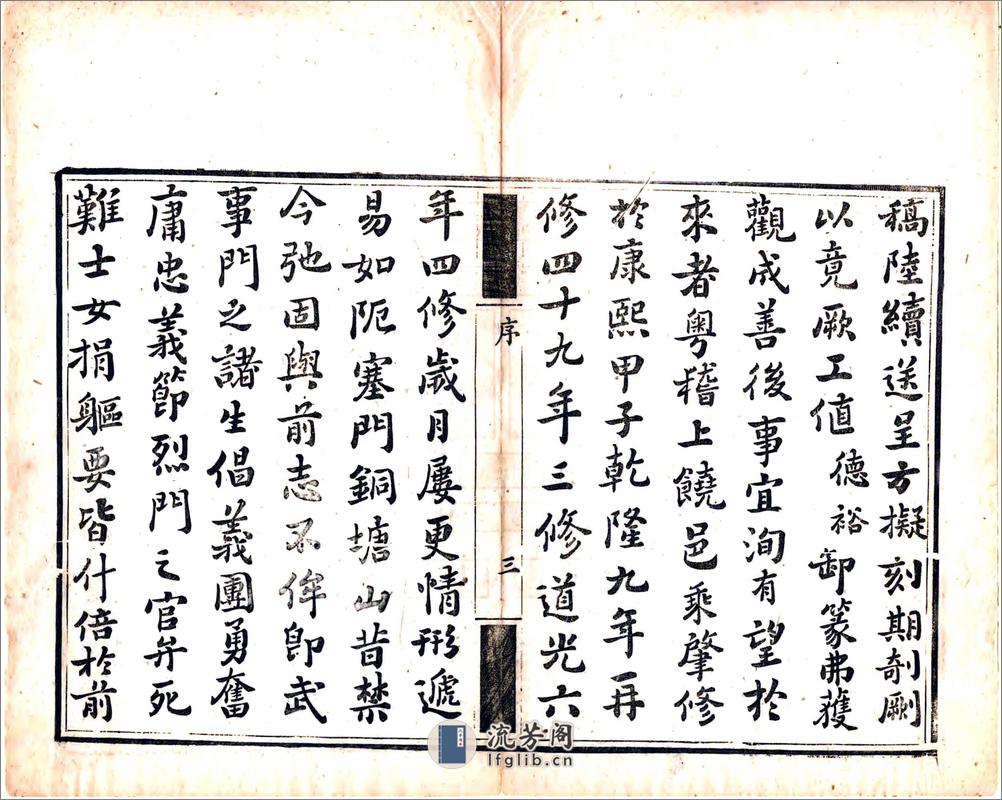 稿陸續送呈方擬刻期剞劂
以竟厥工值德裕卸篆弗獲
觀成善後事宜洵有望於
來者粵稽上饒邑乘肇修
於康熙甲子乾隆九年再
修四十九年三修道光六
序
三
年四修歲月屢更情形遞
易如阨塞門銅塘山昔禁
今弛固與前志不侔即武
事門之諸生倡義團勇奮
庸忠義節烈門之官弁死
難士女捐軀要皆什倍於前
流芳阁
lfglib.cn